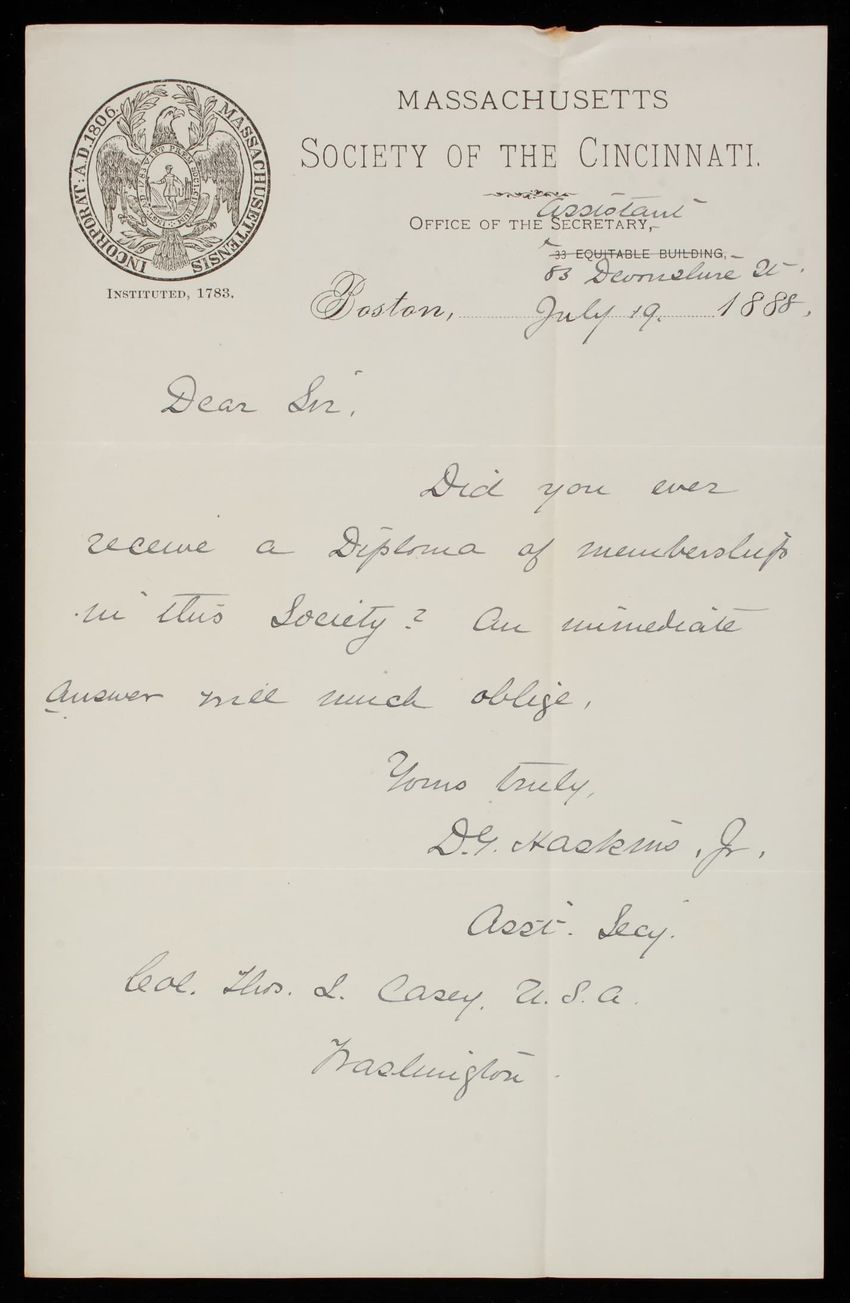 MASSACHUSETTS
SOCIETY OF THE CINCINNATI.
Assistant
OFFICE OF THE SECRETARY,
33 EQUITABLE BUILDING,
83 Devonshire St.
INCORPORAT: A.D. 1806. MASSACHUSETTENSIS
INSTITUTED, 1783.
Boston, July 19. 1888.
Dear Sir,
Did you ever
receive a Diploma of membership
in this Society? An immediate
answer will much oblige,
Yours truly,
D.G. Haskins, Jr,
Asst. Secy.
Col. Thos. L. Casey, U.S.A.
Washington.